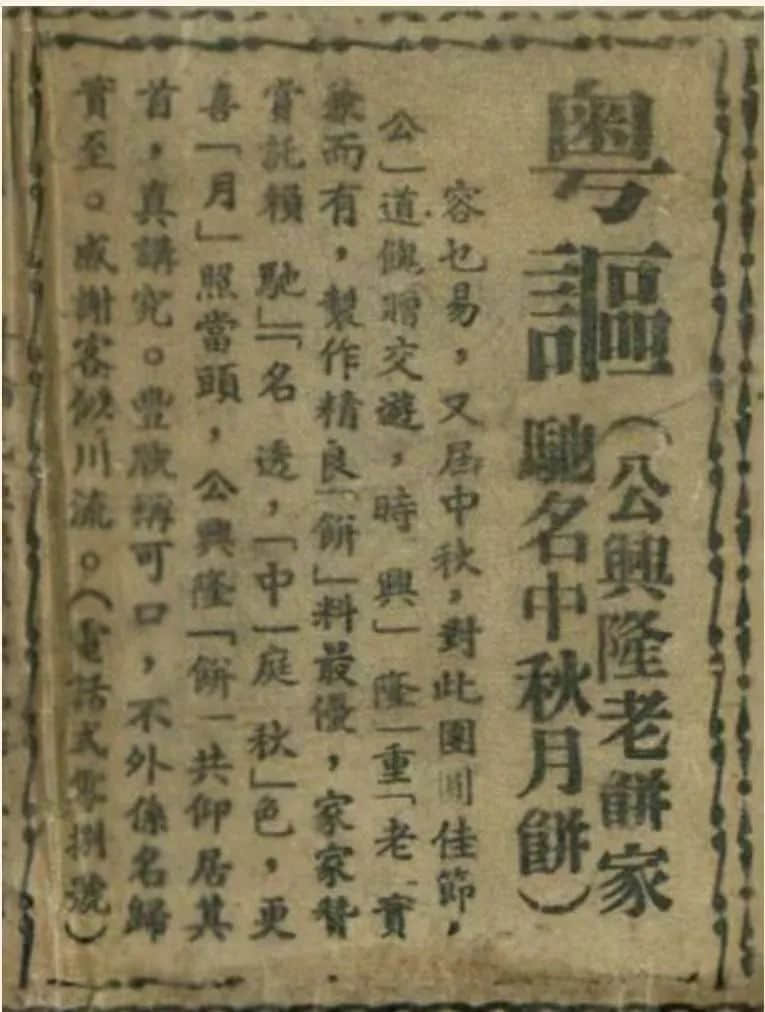 粤謳
(公興隆老餅家
馳名中秋月餅)
容乜易，又届中秋，對此團圓佳節，
公」道餽贈交遊，時「興」隆「重「老」實
兼而有，製作精良「餅」料最優，家家贊
賞託賴「馳」「名」透，「中」庭「秋」色，更
喜「月」照當頭，公興隆「餅」共仰居其
首，真講究。豐腴稱可口，不外係名歸
實至。感謝客似川流。(電話式零捌號)